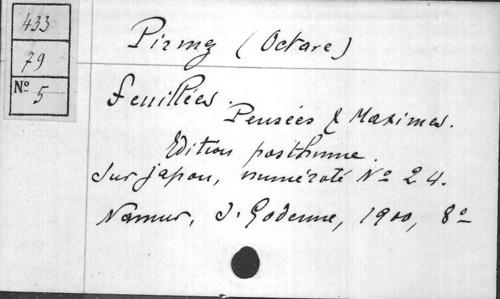 433
79
Nº 5
Pirmez (Octave)
Feuillées.
Pensées & Maximes.
Edition posthume.
Sur japon, numéroté Nº 24.
Namur, J. Godenne, 1900, 8º